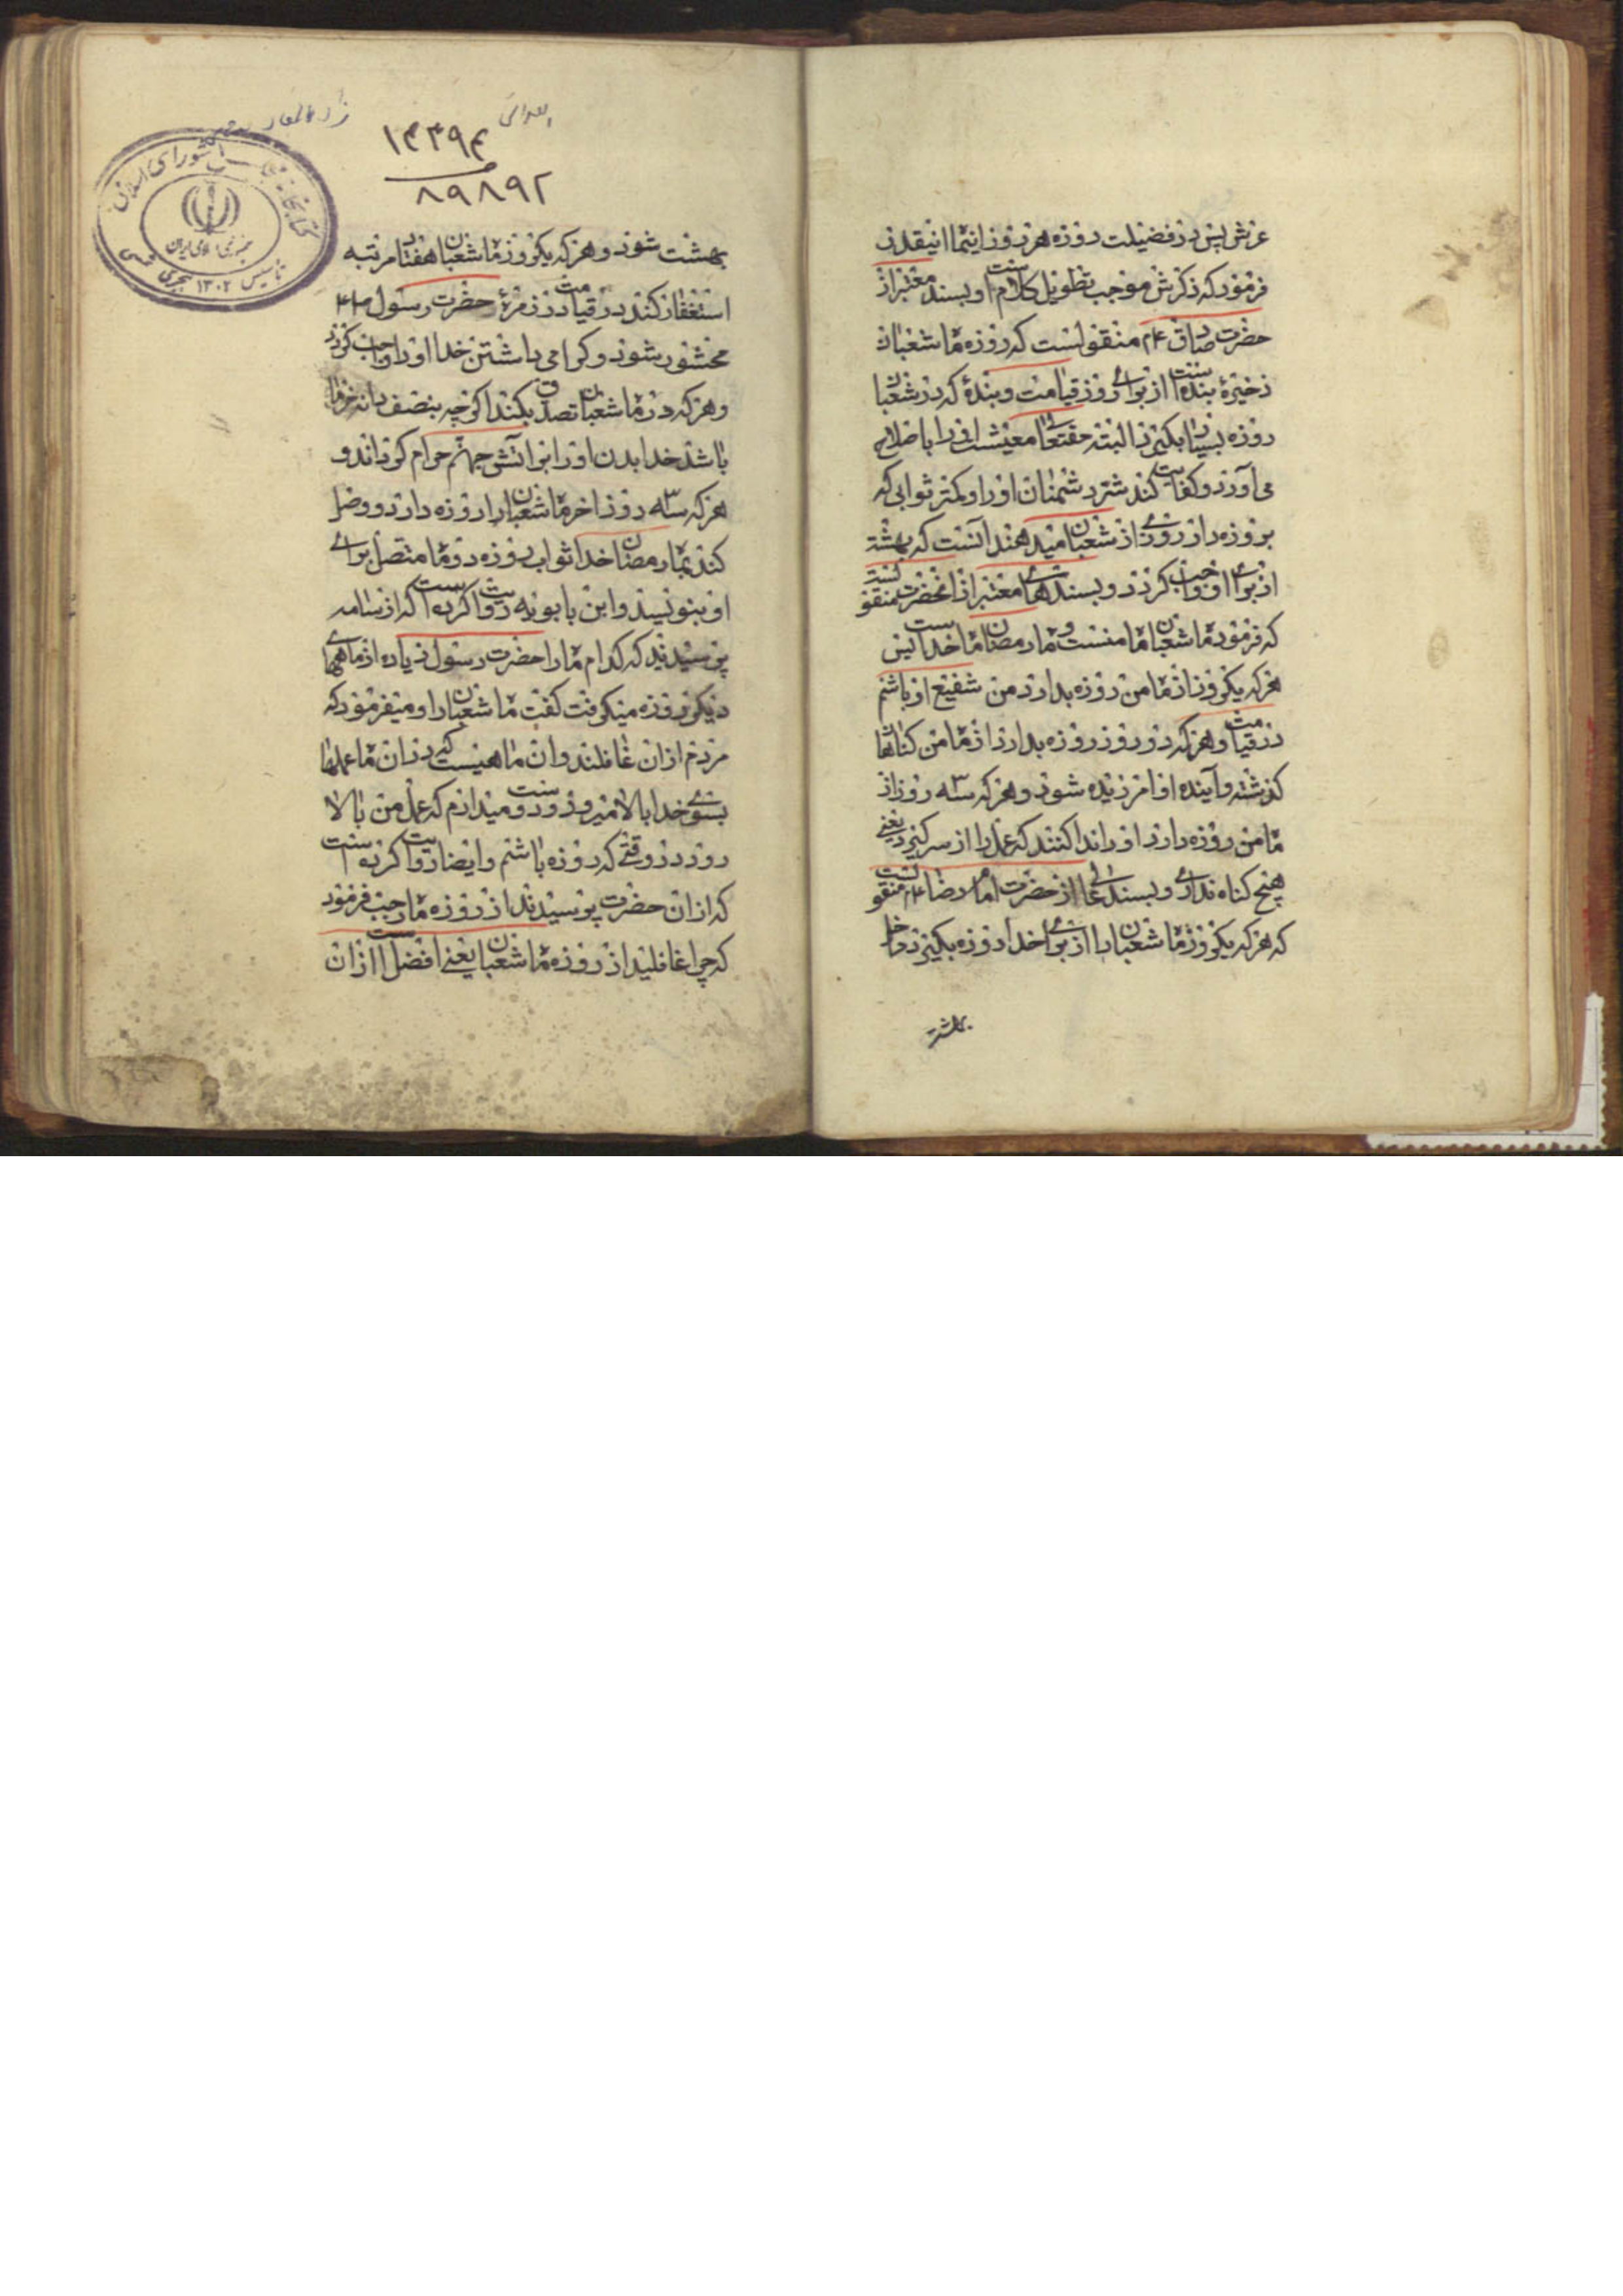 عرش پس در فضیلت روزه هر روز این ماه اینقدر
فرمود که ذکرش موجب تطویل کلام است و بسند معتبر از
حضرت صادق ع‌م منقولست که روزه ماه شعبان
ذخیرهٔ بنده است از برای روز قیامت و بندهٔ که در شعبان
روزه بسیار بگیرد البته حقتعالی امر معیشت او را باصلاح
می‌آورد و کفایت کند شر دشمنان او را و کمتر ثوابی که
بروزه دار روزی از شعبان میدهند آنست که بهشت
از برای او واجب گردد و بسند های معتبر از آنحضرت منقولست
که فرمود ماه شعبان ماه منست و ماه رمضان ماه خداست پس
هر که یکروز از ماه من روزه بدارد من شفیع او باشم
در قیامت و هر که دو روز روزه بدارد از ماه من کناهان
کذشته و آینده او امرزیده شود و هر که سه روز از
ماه من روزه دارد او را ندا کنند که عمل را از سر کیر یعنی
هیچ کناه نداری و بسند عالی از حضرت امام رضا ع‌م منقولست
که هر که یکروز ماه شعبان را از برای خدا روزه بگیرد داخل
بهشت
۱۳۳۹۴
۸۹۸۹۲
کتابخانه مجلس شورای اسلامی
جمهوری اسلامی ایران
تاسیس ۱۳۰۲ هجری شمسی
بهشت شود و هر که یکروز ماه شعبان هفتاد مرتبه
استغفار کند در قیامت در زمرهٔ حضرت رسول ص‌ع‌م
محشور شود و کرامی داشتن خدا او را واجب کردد
و هر که در ماه شعبان تصدق بکند اکرچه بنصف دانه خرما
باشد خدا بدن او را بر آتش جهنم حرام کرداند و
هر که سه روز اخر ماه شعبان را روزه دارد و وصل
کند بماه رمضان خدا ثواب روزه دو ماه متصل برای
او بنویسد و ابن بابویه روایت کرده است که از اسامه
پرسیدند که کدام ماه را حضرت رسول زیاده از ماههای
دیگر روزه میکرفت کفت ماه شعبان را و میفرمود که
مردم از ان غافلند و ان ماهیست که در ان ماه عملها
بسوی خدا بالا میرود و دوست میدارم که عمل من بالا
رود در وقتی که روزه باشم و ایضا روایت کرده است
که از ان حضرت پرسیدند از روزه ماه رجب فرمود
که چرا غافلید از روزه ماه شعبان یعنی افضل است از ان